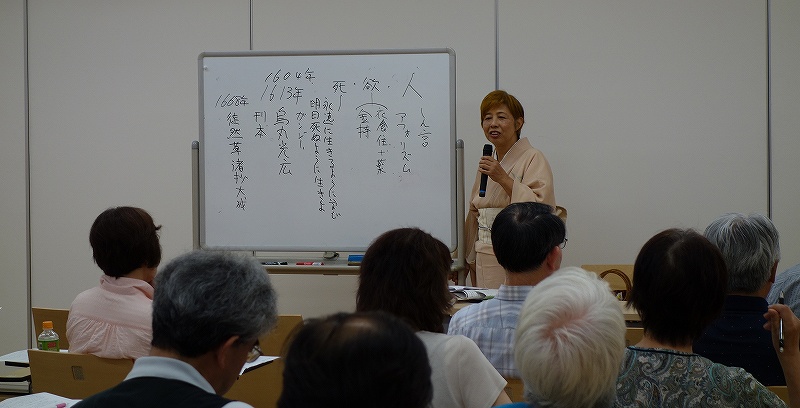 しん言
アフォリズム
人・欲・死
金持
永遠に生きるように学び
明日死ぬように生きよ
ガンジー
1604年
1613年
烏丸光広
刊本
1668年
徒然草諸抄大成